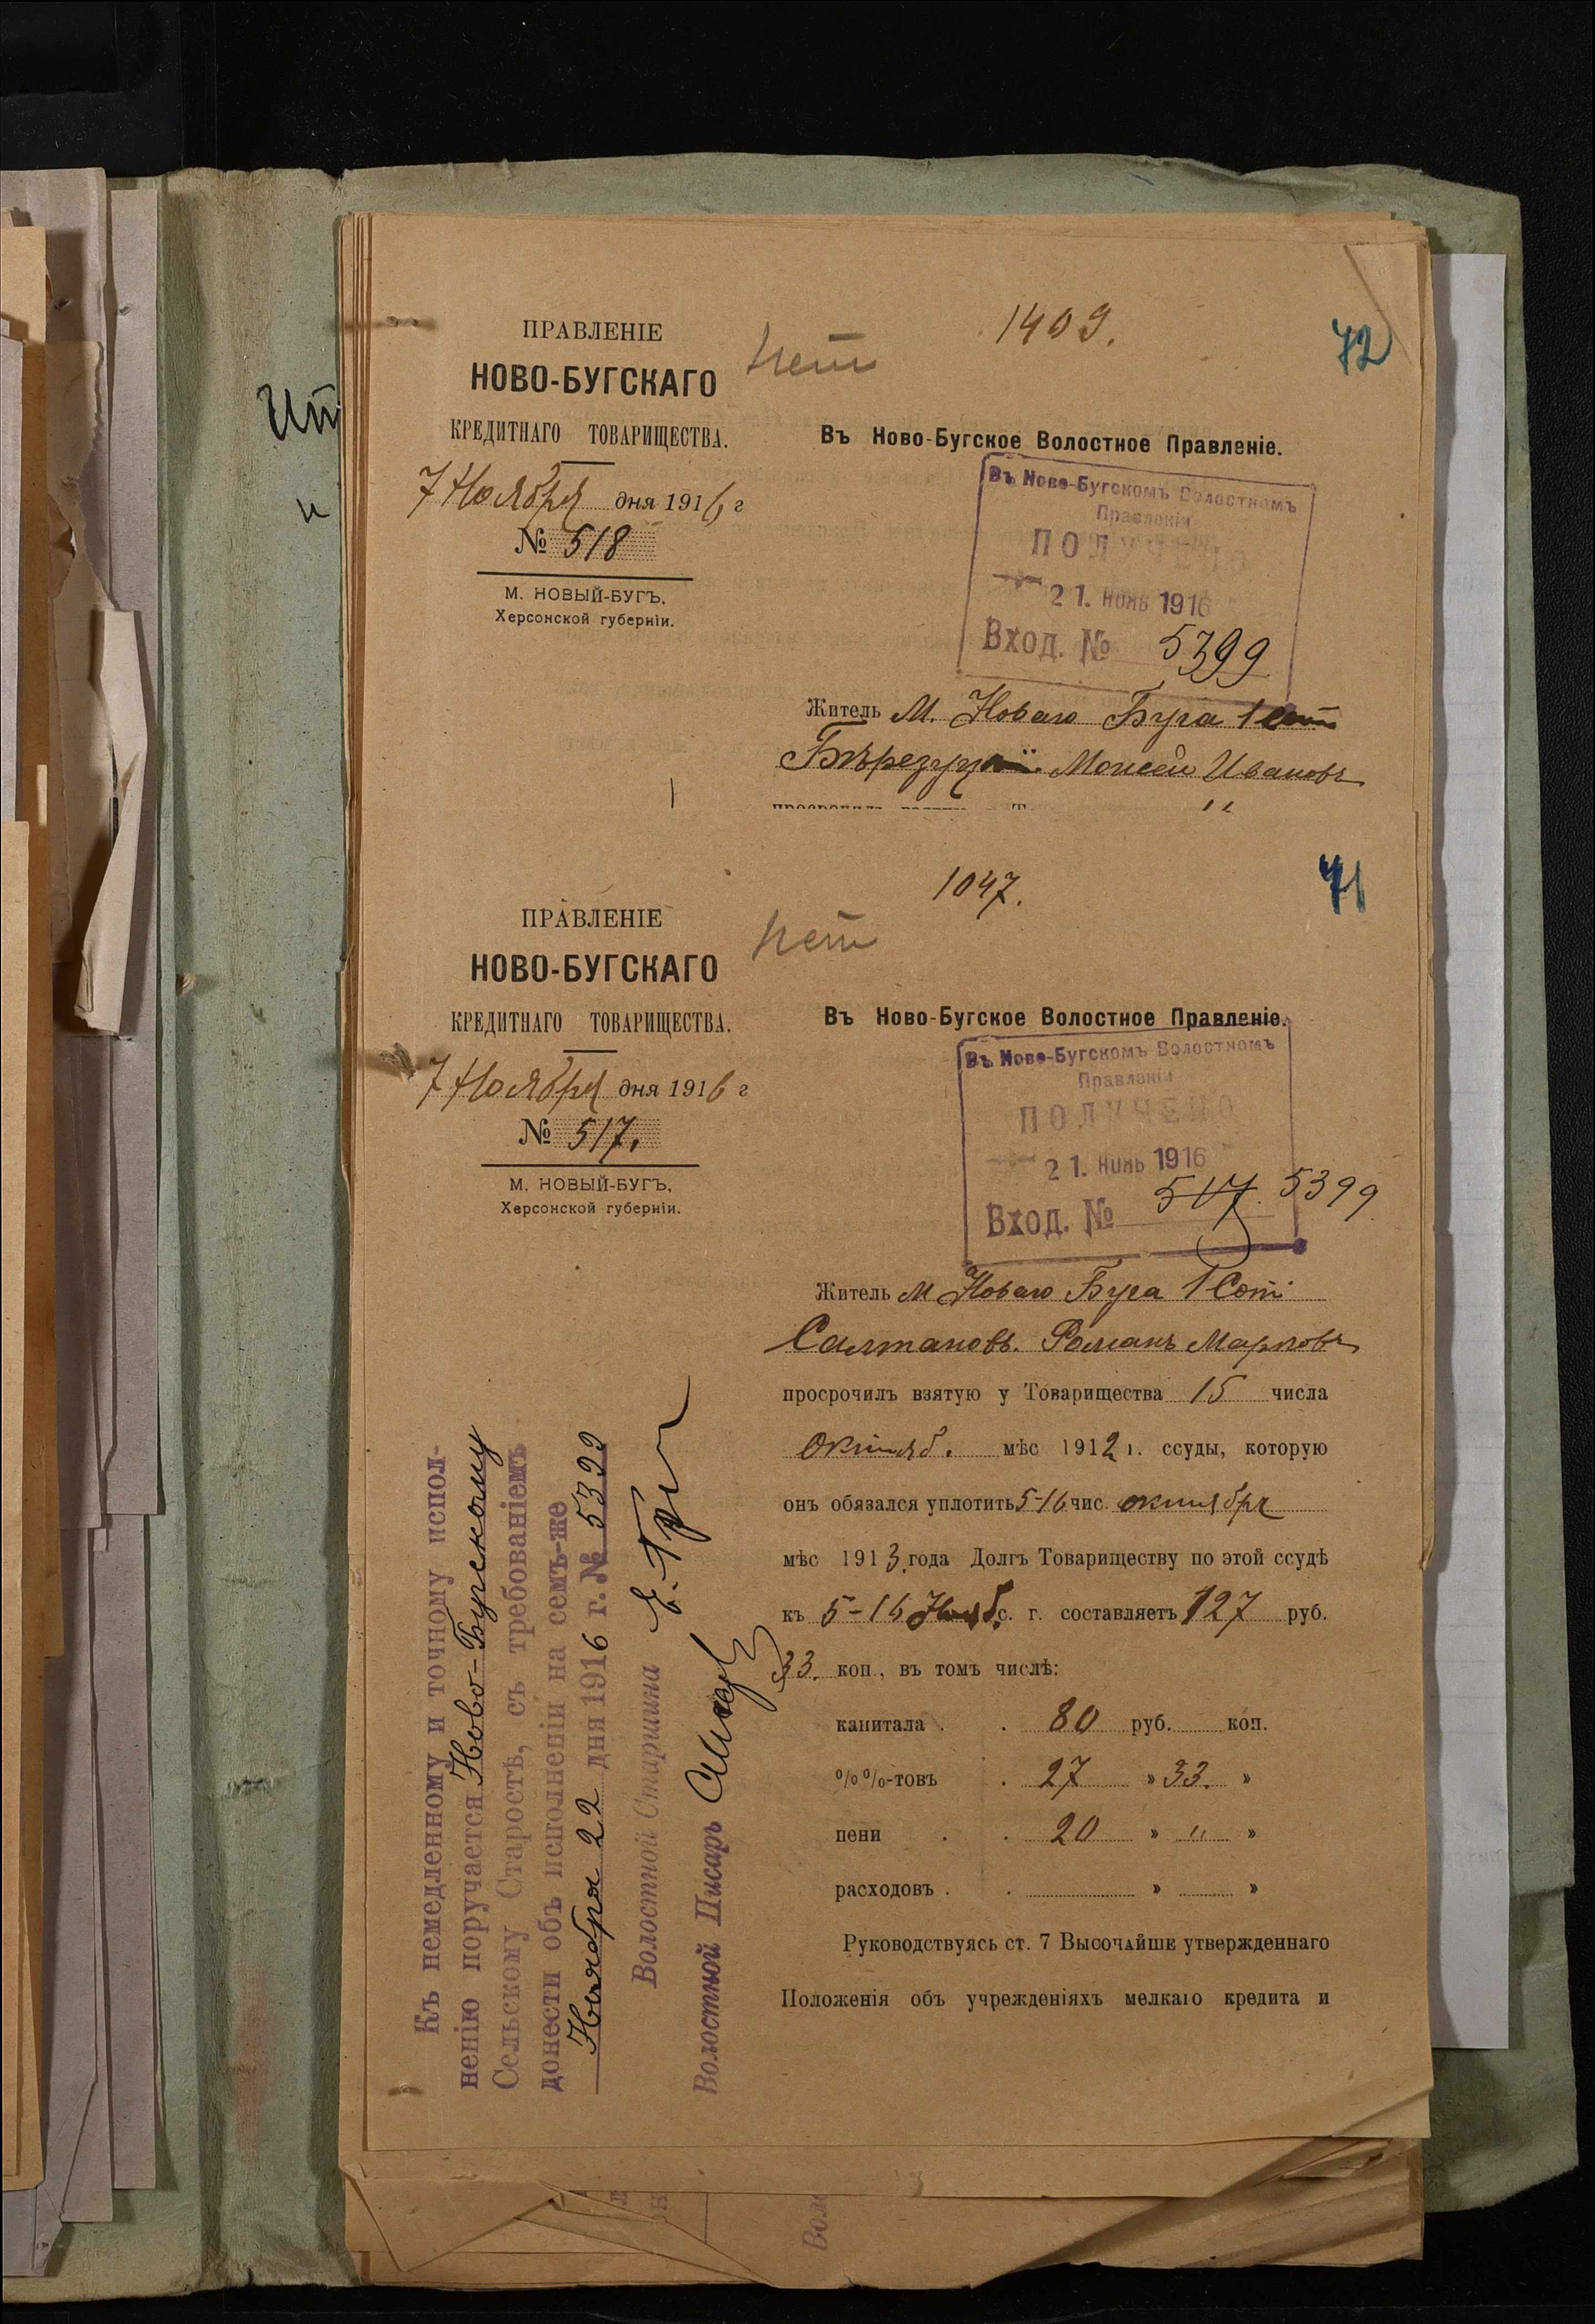 1409.
72
ПРАВЛЕНІЕ
нет
НОВО-БУГСКАГО
КРЕДИТНАГО ТОВАРИЩЕСТВА.
Въ Ново-Бугское Волостное Правленіе.
7 Ноября дня 1916 г
№ 518
М. НОВЫЙ-БУГЪ,
Херсонской губерніи.
Въ Ново-Бугскомъ Волостномъ
Правленіи
ПОЛУЧЕНО
21. НОЯБ 1916
Вход. № 5399
Житель М. Новаго Буга 1 Сот
Моисей Ивановъ
1047.
71
ПРАВЛЕНІЕ
нет
НОВО-БУГСКАГО
КРЕДИТНАГО ТОВАРИЩЕСТВА.
Въ Ново-Бугское Волостное Правленіе.
7 Ноября дня 1916 г
№ 517.
М. НОВЫЙ-БУГЪ,
Херсонской губерніи.
Въ Ново-Бугскомъ Волостномъ
Правленіи
ПОЛУЧЕНО
21. НОЯБ 1916
Вход. № 517. 5399
Житель М Новаго Буга 1 Сот.
Салтановъ. Романъ Марковъ
просрочилъ взятую у Товарищества 15 числа
Октяб. мѣс 1912 г. ссуды, которую
онъ обязался уплотить 5-16 чис. октября
мѣс 1913. года Долгъ Товариществу по этой ссудѣ
къ 5-16 Нояб. с. г. составляетъ 127 руб.
33. коп., въ томъ числѣ:
капитала . . 80 руб. коп.
%%-товъ . 27 » 33. »
пени . . 20 » " »
расходовъ . . » »
Руководствуясь ст. 7 Высочайше утвержденнаго
Положенія объ учрежденіяхъ мелкаго кредита и
Къ немедленному и точному испол-
ненію поручается Ново-Бугскому
Сельскому Старостѣ, съ требованіемъ
донести объ исполненіи на семъ-же
Ноября 22 дня 1916 г. № 5399
Волостной Старшина
Волостной Писарь